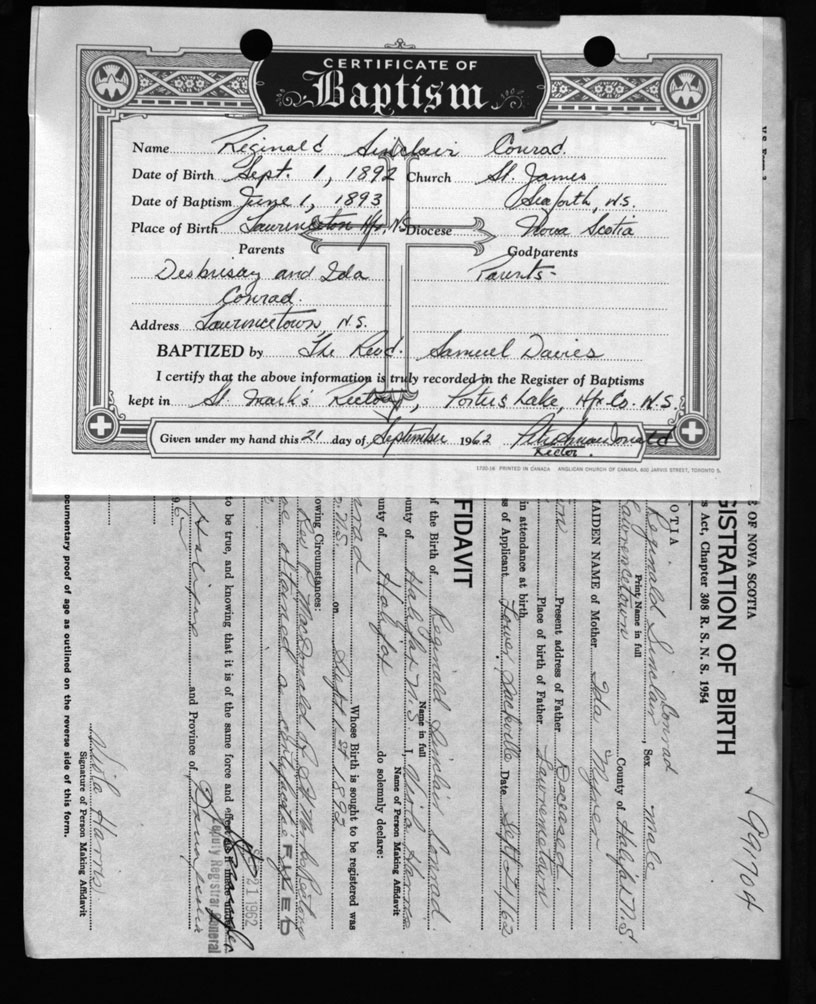 CERTIFICATE OF
Baptism
Name Reginald Sinclair Conrad.
Date of Birth Sept. 1, 1892 Church St. James
Date of Baptism June 1, 1893 Seaforth, N.S.
Place of Birth Lawrencetown Hfx. N.S. Diocese Nova Scotia
Parents Godparents
Desbrisay and Ida Parents-
Conrad.
Address Lawrencetown, N.S.
BAPTIZED by The Revd. Samuel Davies
I certify that the above information is truly recorded in the Register of Baptisms
kept in St. Mark's Rectory, Porters Lake, Hfx Co. N.S.
Given under my hand this 21 day of September 1962
Rector.
1720-16 PRINTED IN CANADA ANGLICAN CHURCH OF CANADA, 600 JARVIS STREET, TORONTO 5.
E OF NOVA SCOTIA
GISTRATION OF BIRTH
s Act, Chapter 308 R. S. N. S. 1954
991704
OTIA
Reginald Sinclair Conrad Sex male
Print Name in full
Lawrencetown County of Halifax N.S.
MAIDEN NAME of Mother Ida
Present address of Father Deceased
Place of birth of Father Lawrencetown
in attendance at birth
ss of Applicant Lower Sackville Date Sept 21/62
FIDAVIT
of the Birth of Reginald Sinclair Conrad
Name in full
ounty of Halifax N.S. I, Harris
Name of Person Making Affidavit
unty of Halifax do solemnly declare:
Whose Birth is sought to be registered was
N.S. on Sept 1st 1892
owing Circumstances:
Rev P. MacDonald Rectory
certificate
FILED
to be true, and knowing that it is of the same force and effect as if made under
21 1962
Deputy Registrar General
Halifax and Province of
Harris
Signature of Person Making Affidavit
ocumentary proof of age as outlined on the reverse side of this form.